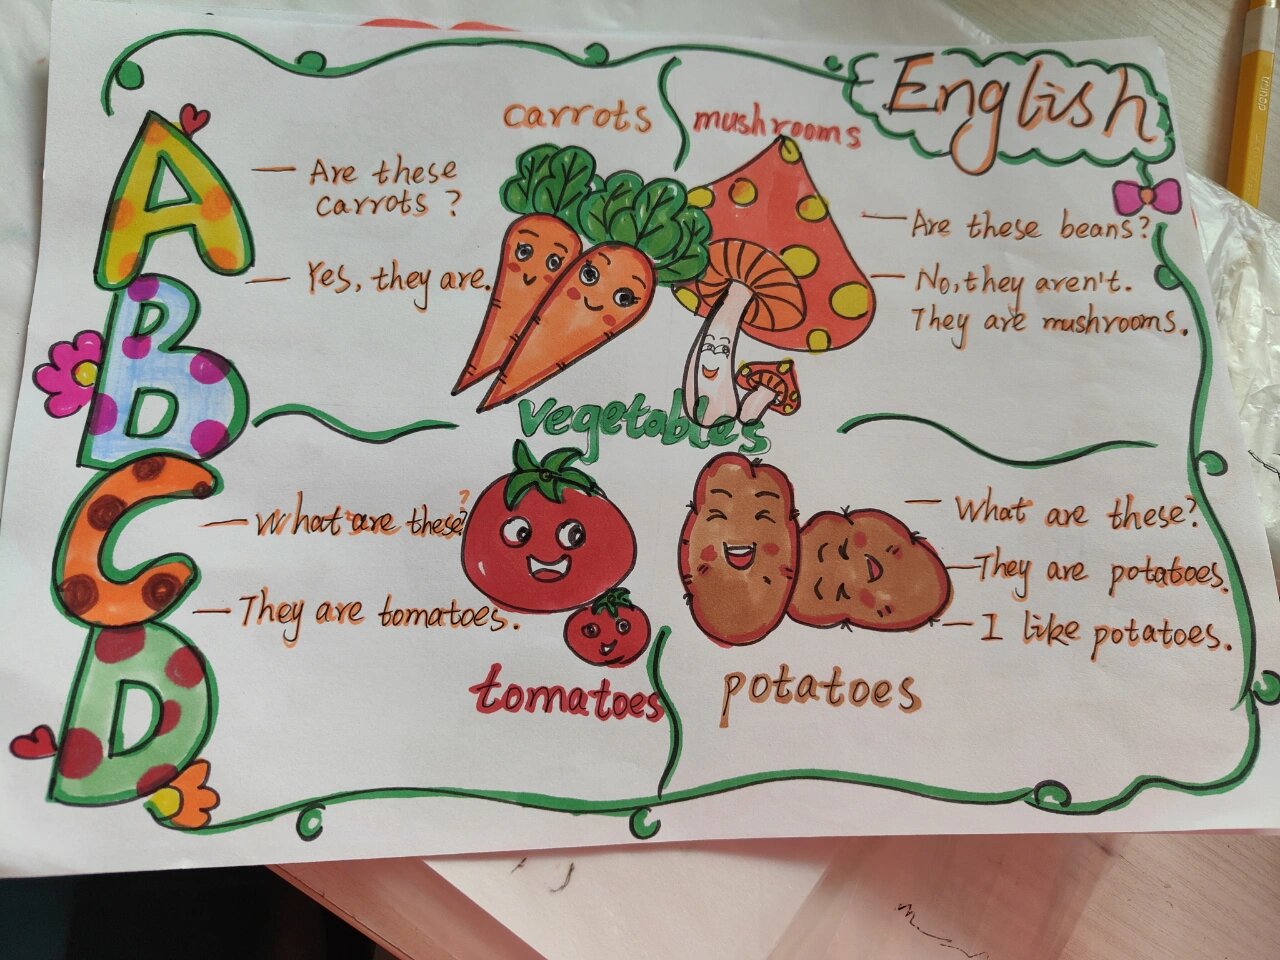 English
A
B
C
D
carrots
— Are these
carrots ?
— Yes, they are.
mushrooms
— Are these beans?
— No, they aren't.
They are mushrooms.
vegetables
— What are these?
— They are tomatoes.
tomatoes
— What are these?
— They are potatoes.
— I like potatoes.
potatoes